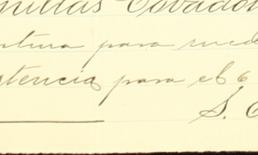 millas Covadon
ntura para mede
stencia para el 6
S. C